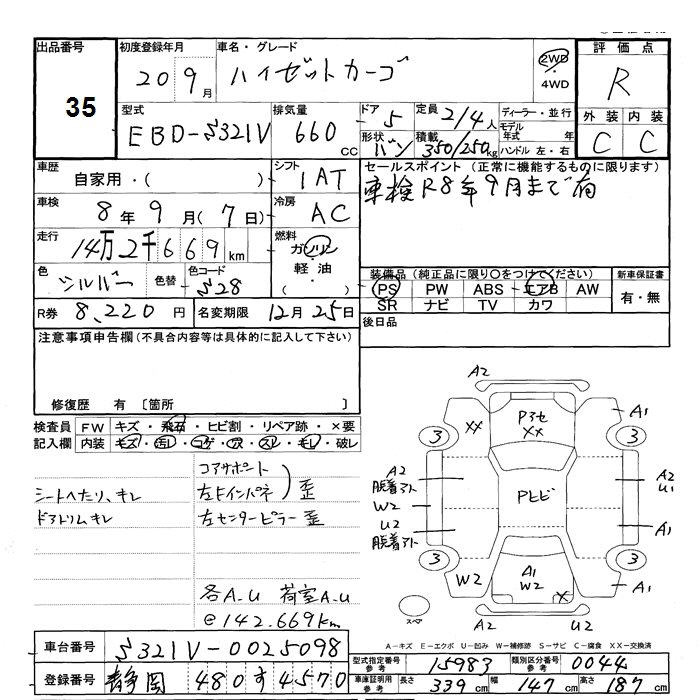 出品番号 35
初度登録年月 20 9月
車名・グレード ハイゼットカーゴ
2WD・4WD
評価点 R
型式 EBD-S321V
排気量 660 CC
ドア 5
定員 2/4人
形状 バン
積載 350/250kg
ディーラー・並行
モデル年式 年
ハンドル 左・右
外装 内装
C C
車歴 自家用・( )
シフト 1AT
セールスポイント(正常に機能するものに限ります)
車検R8年9月まで有
車検 8年9月(7日)
冷房 AC
走行 14万2千669km
燃料 ガソリン・軽油・( )
色 シルバー 色替 色コード S28
装備品(純正品に限り○をつけてください) 新車保証書
PS PW ABS エアB AW 有・無
SR ナビ TV カワ
R券 8,220円 名変期限 12月25日
後日品
注意事項申告欄(不具合内容等は具体的に記入して下さい)
修復歴 有 〔箇所 〕
検査員記入欄 FW キズ・飛石・ヒビ割・リペア跡・×要
内装 キズ・汚レ・コゲ・穴・スレ・キレ・破レ
コアサポート
シートヘたり、キレ 左Fインパネ 歪
ドアトリムキレ 左センターピラー歪
各A-U 荷室A-U
@142.669km
A2
XX P3セ XX A1
3 3
A2 脱着アト W2 U2 脱着アト PヒビA2 U1 A1
3 3
W2 A1 W2 X A1
スペア A2 U2
A-キズ E-エクボ U-凹み W-補修跡 S-サビ C-腐食 XX-交換済
車台番号 S321V-0025098
型式指定番号 参考 15983 類別区分番号 参考 0044
登録番号 静岡 480す4570
車庫証明用 参考 長さ 339cm 幅 147cm 高さ 187cm